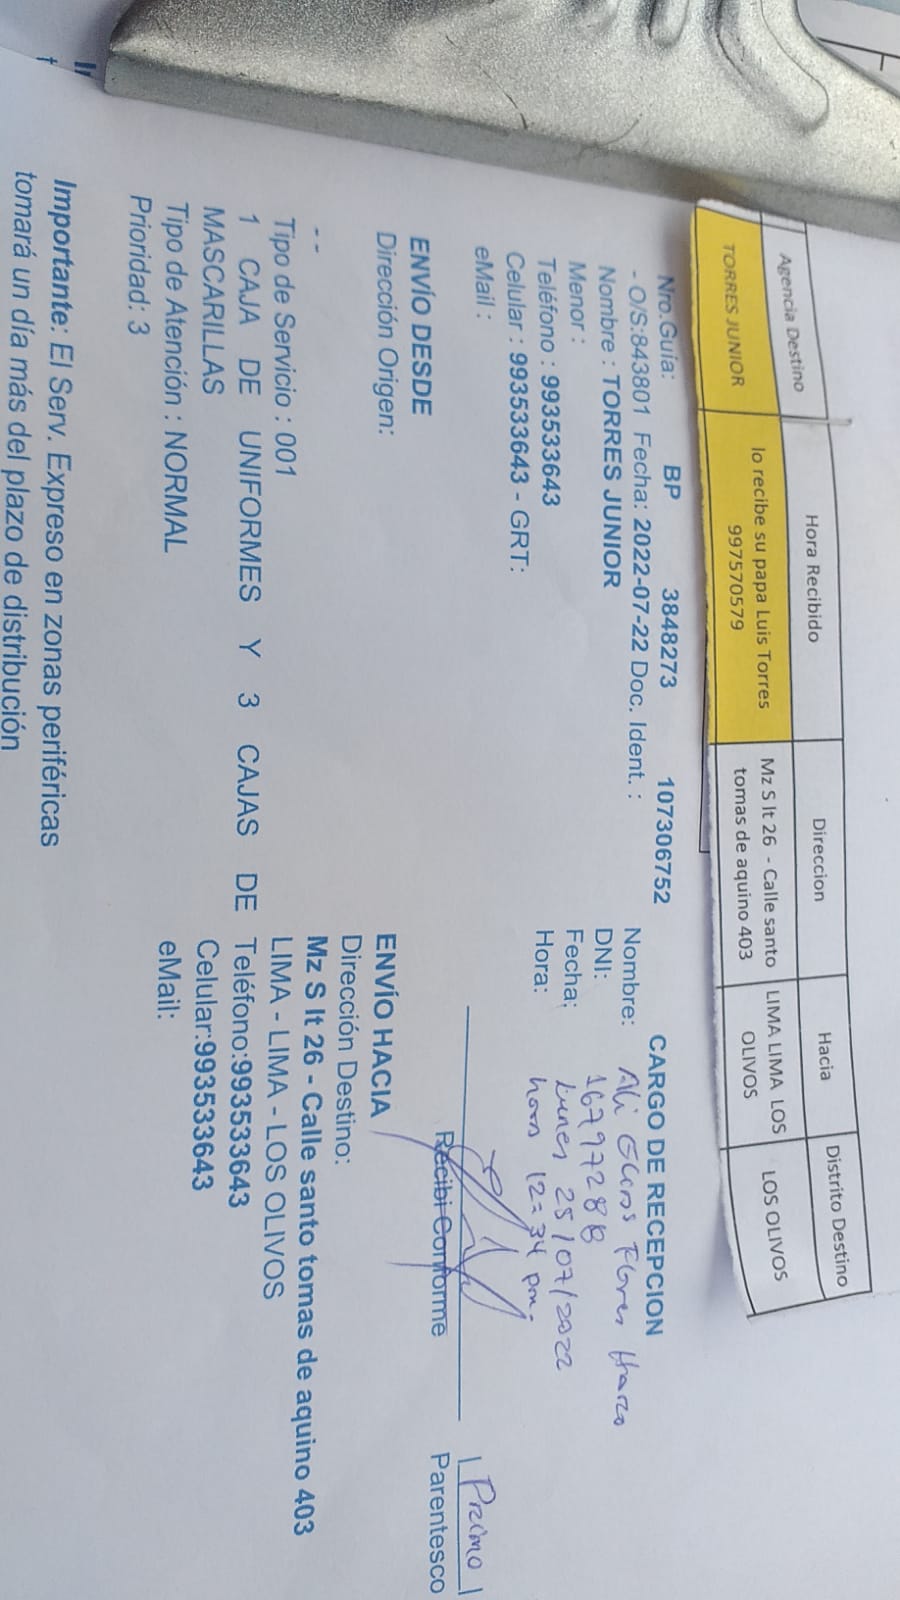 Agencia Destino
Hora Recibido
Direccion
Hacia
Distrito Destino
TORRES JUNIOR
lo recibe su papa Luis Torres
997570579
Mz S lt 26 - Calle santo
tomas de aquino 403
LIMA LIMA LOS
OLIVOS
LOS OLIVOS
Nro.Guia: BP 3848273 107306752
- O/S:843801 Fecha: 2022-07-22 Doc. Ident. :
Nombre : TORRES JUNIOR
Menor :
Teléfono : 993533643
Celular : 993533643 - GRT:
eMail :
CARGO DE RECEPCION
Nombre: Ali Flores
DNI: 16797288
Fecha: Lunes 25/07/2022
Hora: hora 12:34 pm.
Recibi Conforme
Primo
Parentesco
ENVÍO DESDE
Dirección Origen:
- -
Tipo de Servicio : 001
1 CAJA DE UNIFORMES Y 3 CAJAS DE
MASCARILLAS
Tipo de Atención : NORMAL
Prioridad: 3
ENVÍO HACIA
Dirección Destino:
Mz S lt 26 - Calle santo tomas de aquino 403
LIMA - LIMA - LOS OLIVOS
Teléfono:993533643
Celular:993533643
eMail:
Importante: El Serv. Expreso en zonas periféricas
tomará un día más del plazo de distribución